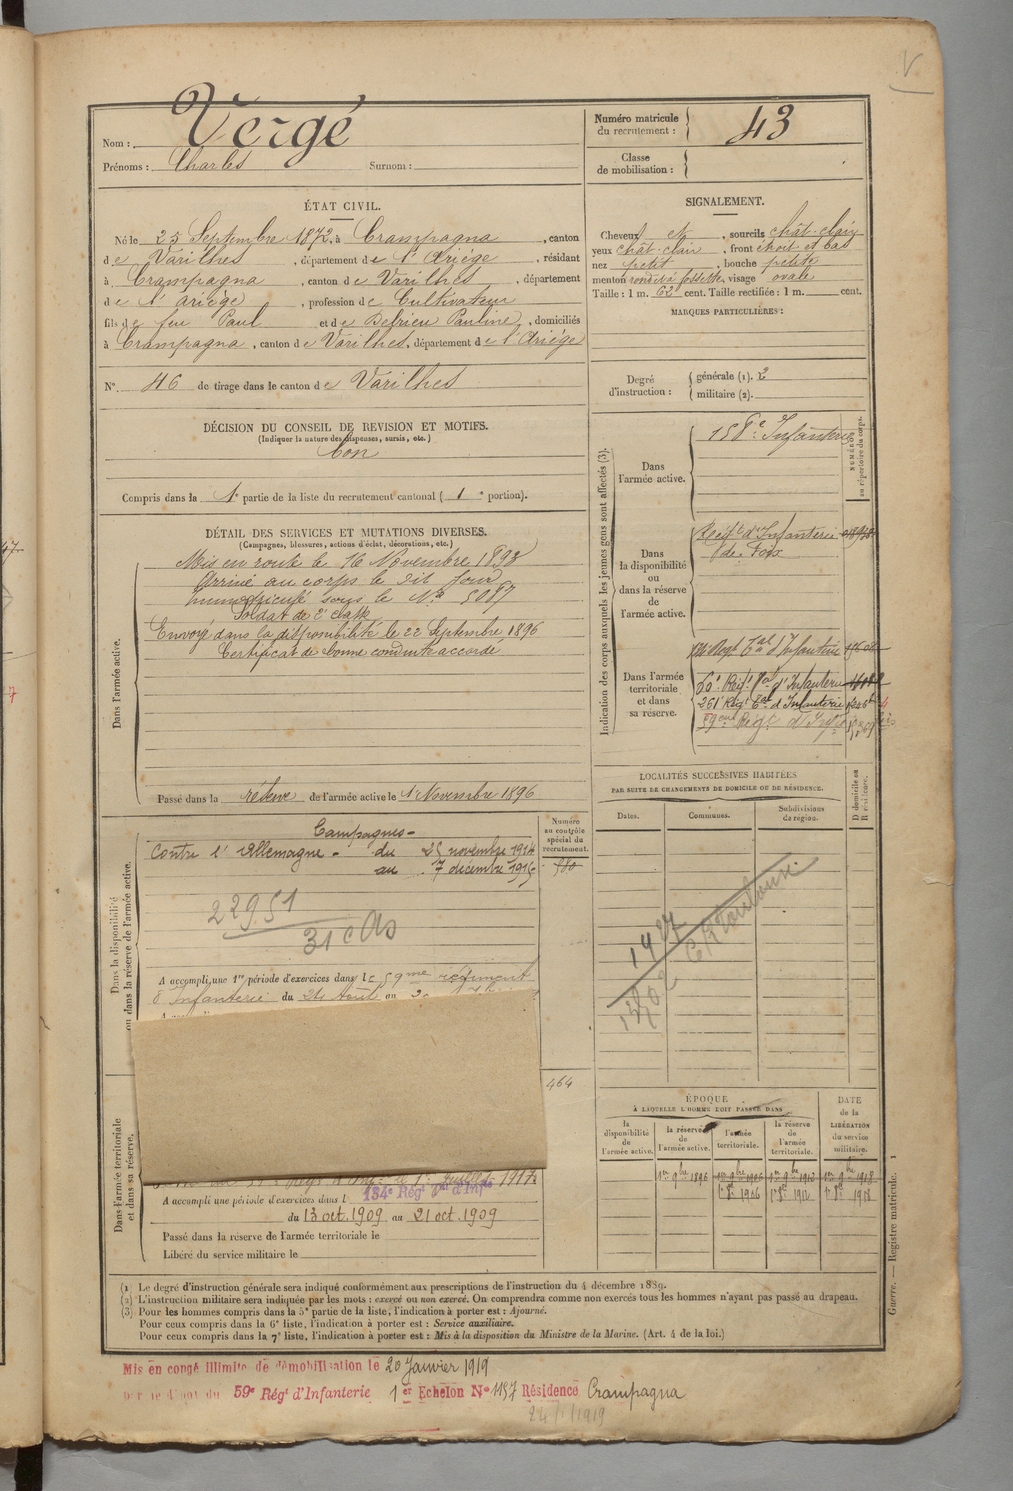 Nom : Vergé
Prénoms : Charles Surnom :
Numéro matricule du recrutement : 43
Classe de mobilisation :
ÉTAT CIVIL.
Né le 25 Septembre 1872, à Crampagna, canton
de Varilhes, département de l'Ariège, résidant
à Crampagna, canton de Varilhes, département
de l'Ariège, profession de Cultivateur
fils de feu Paul et de Pauline, domiciliés
à Crampagna, canton de Varilhes, département de l'Ariège
N° 46 de tirage dans le canton de Varilhes
SIGNALEMENT.
Cheveux et, sourcils chât-clair
yeux chât-clair, front étroit et bas
nez petit, bouche petite
menton rond à fossette, visage ovale
Taille : 1 m. 62 cent. Taille rectifiée : 1 m. cent.
MARQUES PARTICULIÈRES :
Degré d'instruction : générale (1). 2
militaire (2).
DÉCISION DU CONSEIL DE REVISION ET MOTIFS.
(Indiquer la nature des dispenses, sursis, etc.)
bon
Compris dans la 1e partie de la liste du recrutement cantonal (1e portion).
DÉTAIL DES SERVICES ET MUTATIONS DIVERSES.
(Campagnes, blessures, actions d'éclat, décorations, etc.)
Dans l'armée active.
Mis en route le 16 Novembre 1893
Arrivé au corps le dit jour
Immatriculé sous le No 5087
Soldat de 2e classe
Envoyé dans la disponibilité le 22 Septembre 1896
Certificat de bonne conduite accordé
Passé dans la réserve de l'armée active le 1 Novembre 1896
Indication des corps auxquels les jeunes gens sont affectés (3).
NUMÉRO au répertoire du corps.
Dans l'armée active.
Infanterie
Dans la disponibilité ou dans la réserve de l'armée active.
Régt d'Infanterie
de Foix
Dans l'armée territoriale et dans sa réserve.
Regt Tal d'Infanterie
Regt Tal d'Infanterie
261e Regt Tal d'Infanterie
59eme Regt d'Infie
LOCALITÉS SUCCESSIVES HABITÉES
PAR SUITE DE CHANGEMENTS DE DOMICILE OU DE RÉSIDENCE.
Dates. Communes. Subdivisions de région. D domicile ou R résidence.
1927
Toulouse
Dans la disponibilité ou dans la réserve de l'armée active.
Numéro au contrôle spécial du recrutement.
Campagnes
Contre l'Allemagne - du 25 novembre 1914
au 7 décembre 1915
580
22951
31
A accompli une 1re période d'exercices dans le 59me régiment
d'Infanterie du 24 Août au
464
Dans l'armée territoriale et dans sa réserve.
Juillet 1917.
A accompli une période d'exercices dans l
134e Régt Tal d'Infie
du 13 oct. 1909 au 21 oct. 1909
Passé dans la réserve de l'armée territoriale le
Libéré du service militaire le
ÉPOQUE
À LAQUELLE L'HOMME DOIT PASSER DANS
la disponibilité de l'armée active. la réserve de l'armée active. l'armée territoriale. la réserve de l'armée territoriale.
DATE de la LIBÉRATION du service militaire.
1er 9bre 1896 1er 9bre 1906 1er 9bre 1912 1er 9bre 1918
1906 1912 1918
Guerre. — Registre matricule. 1
(1) Le degré d'instruction générale sera indiqué conformément aux prescriptions de l'instruction du 4 décembre 1889.
(2) L'instruction militaire sera indiquée par les mots : exercé ou non exercé. On comprendra comme non exercés tous les hommes n'ayant pas passé au drapeau.
(3) Pour les hommes compris dans la 5e partie de la liste, l'indication à porter est : Ajourné.
Pour ceux compris dans la 6e liste, l'indication à porter est : Service auxiliaire.
Pour ceux compris dans la 7e liste, l'indication à porter est : Mis à la disposition du Ministre de la Marine. (Art. 4 de la loi.)
Mis en congé illimité de démobilisation le 20 Janvier 1919
59e Régt d'Infanterie 1er Echelon No 1157 Résidence Crampagna
24/1/1919